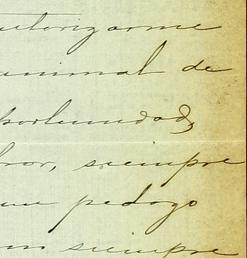 autorizarme
animal de
portunidad,
bror, siempre
un pedazo
siempre